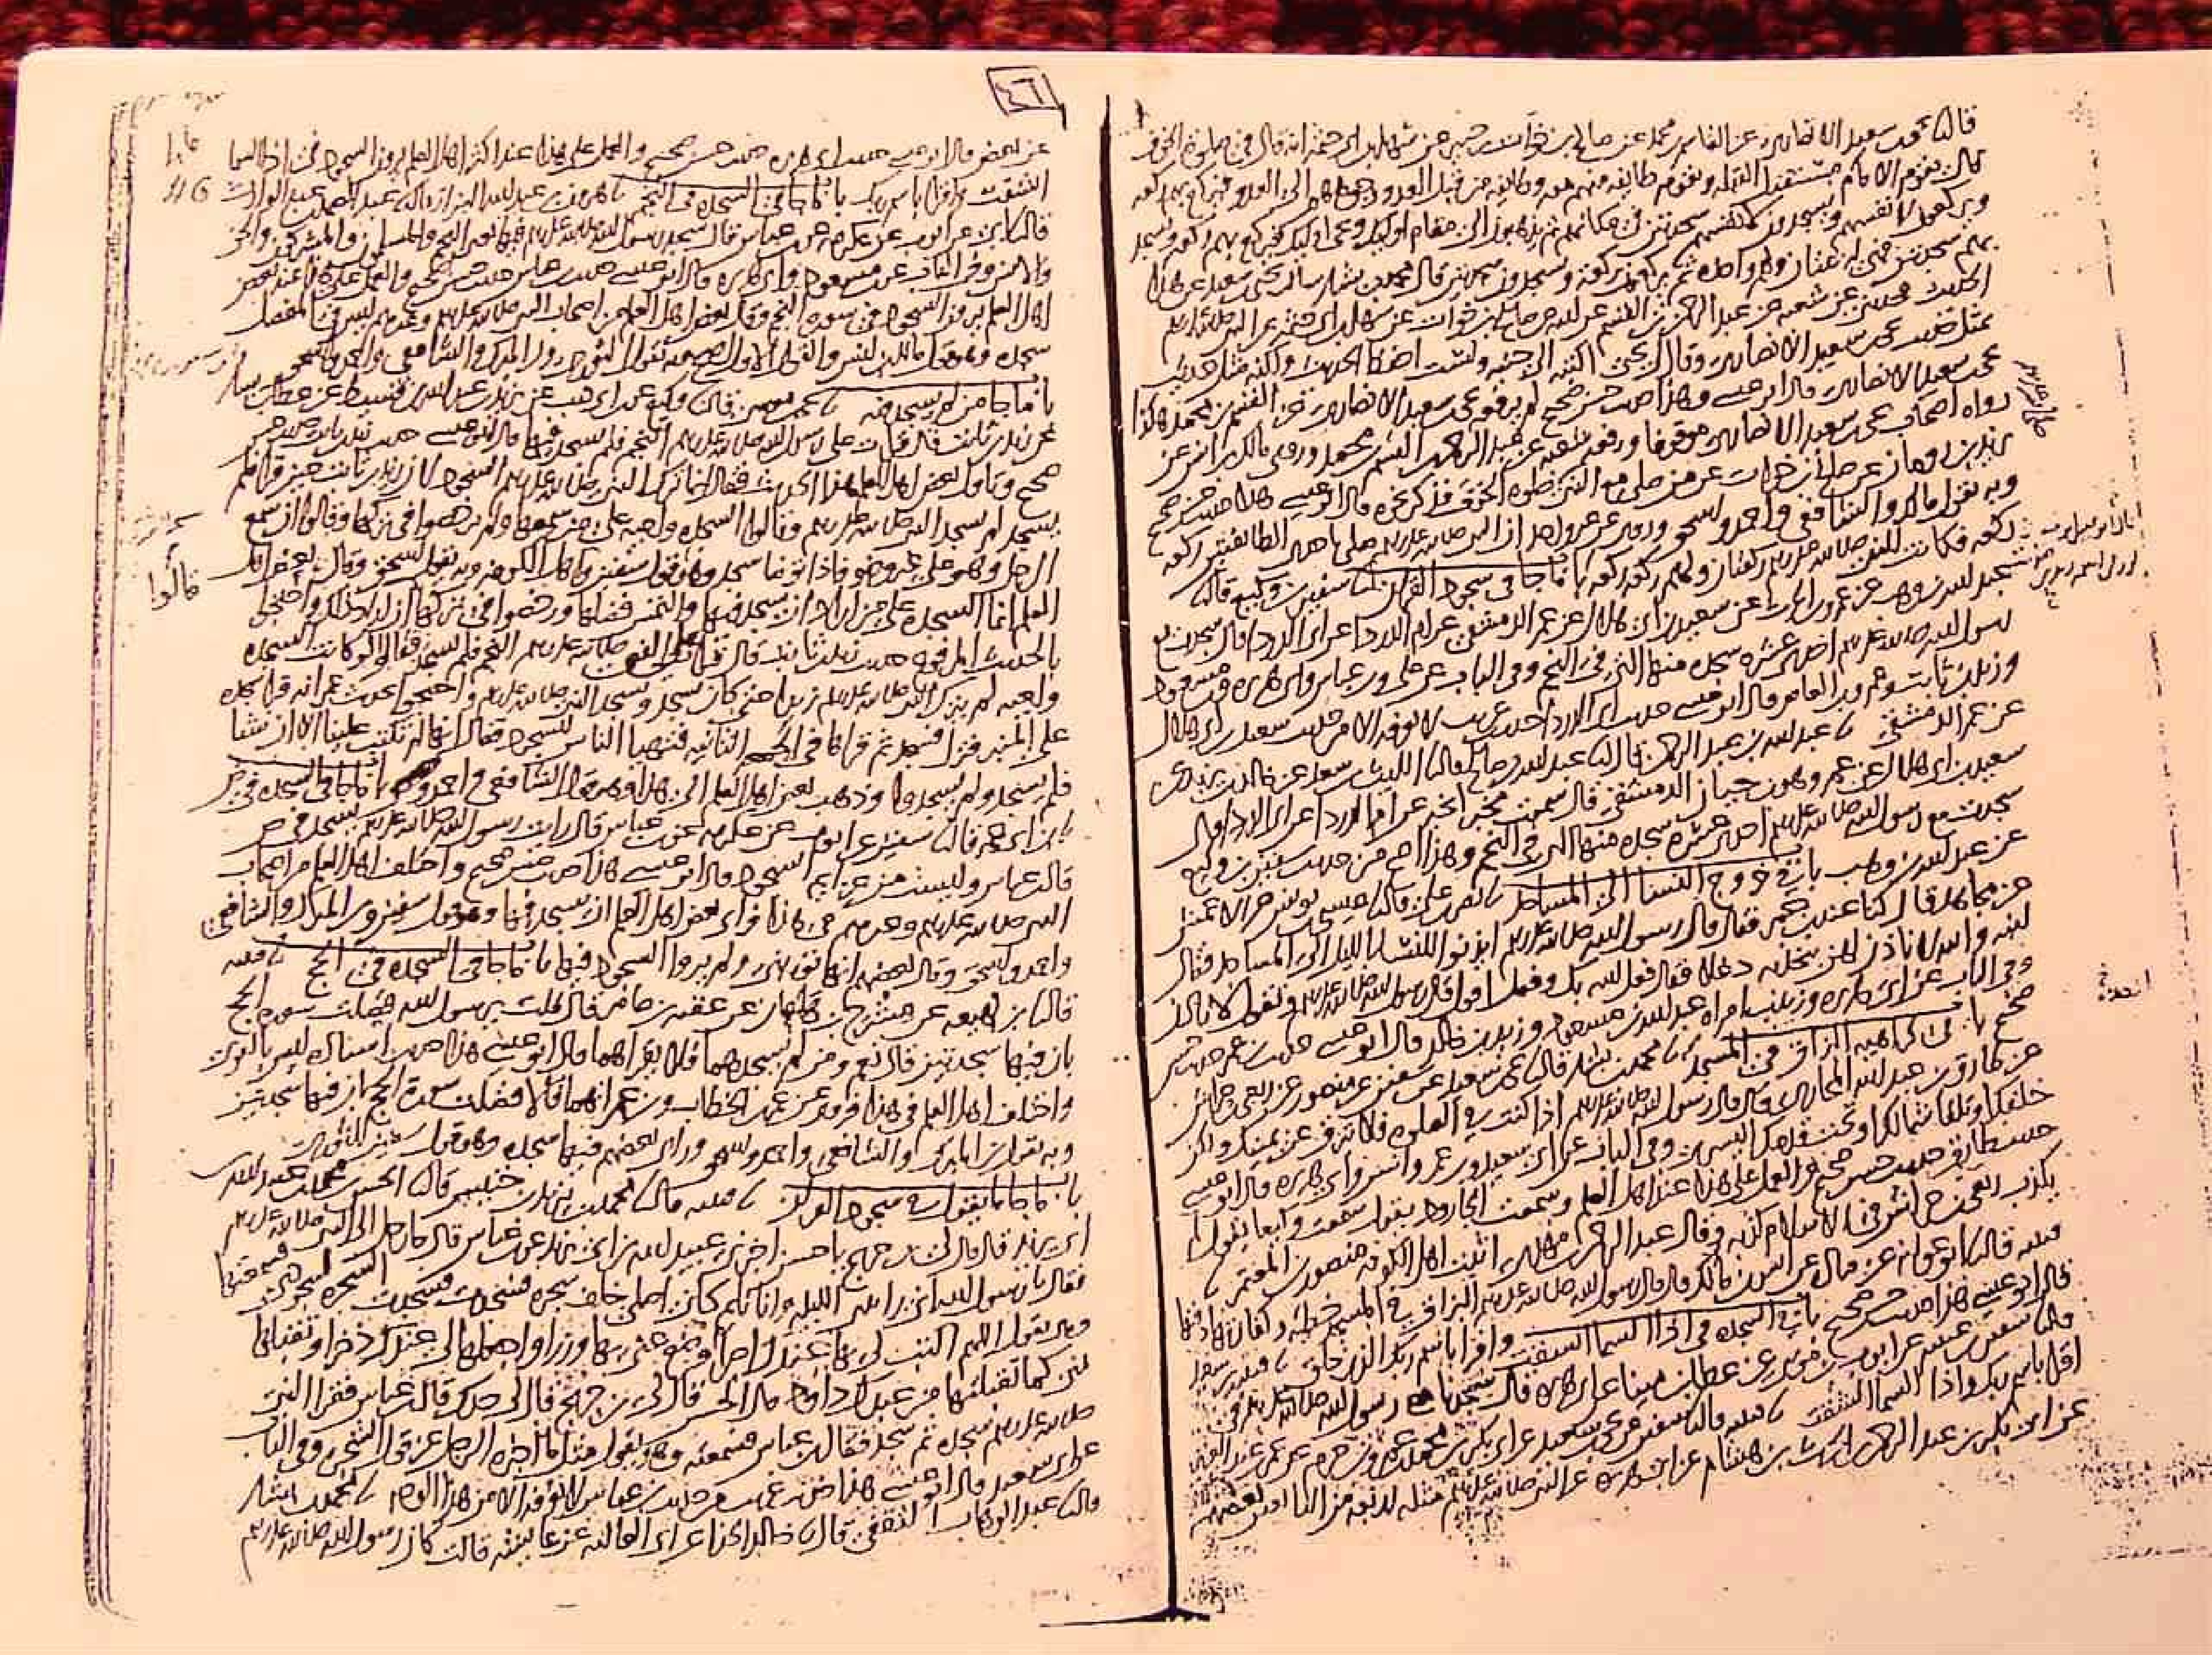 قال نا يحيى بن سعيد الانصاري عن القاسم بن محمد عن صالح بن خوات بن جبير عن سهل بن ابي حثمة انه قال في صلوة الخوف
قال يقوم الامام مستقبل القبلة وتقوم طائفة منهم معه وطائفة من قبل العدو وجوههم الى العدو فيركع بهم ركعة
ويركعون لانفسهم ويسجدون لانفسهم سجدتين في مكانهم ثم يذهبون الى مقام اوليك ويجي اوليك فيركع بهم ركعة ويسجد
بهم سجدتين فهي له ثنتان ولهم واحدة ثم يركعون ركعة ويسجدون سجدتين قال محمد بن بشار سالت يحيى بن سعيد عن هذا
الحديث فحدثني عن شعبة عن عبد الرحمن بن القسم عن ابيه عن صالح بن خوات عن سهل بن ابي حثمة عن النبي صلى الله عليه وسلم
بمثل حديث يحيى بن سعيد الانصاري وقال لي يحيى اكتبه الى جنبه ولست احفظ الحديث ولكنه مثل حديث
يحيى بن سعيد الانصاري قال ابو عيسى وهذا حديث حسن صحيح لم يرفعه يحيى بن سعيد الانصاري عن القسم بن محمد هكذا
رواه اصحاب يحيى بن سعيد الانصاري موقوفا ورفعه شعبة عن عبد الرحمن بن القسم بن محمد وروى مالك بن انس عن
يزيد بن رومان عن صالح بن خوات عن من صلى مع النبي صلوة الخوف فذكر نحوه قال ابو عيسى هذا حديث حسن صحيح
وبه يقول مالك والشافعي واحمد واسحق وروي عن غير واحد ان النبي صلى الله عليه وسلم صلى باحدى الطائفتين ركعة
ركعة فكانت للنبي صلى الله عليه وسلم ركعتان ولهم ركعة ركعة باب ما جا في سجود القرآن نا سفين بن وكيع قال نا
عبد الله بن وهب عن عمرو بن الحرث عن سعيد بن ابي هلال عن عمر الدمشقي عن ام الدردا عن ابي الدردا قال سجدت مع
رسول الله صلى الله عليه وسلم احدى عشرة سجدة منها التي في النجم وفي الباب عن علي وبن عباس وابي هريرة وبن مسعود
وزيد بن ثابت وعمرو بن العاص قال ابو عيسى حديث ابي الدردا حديث غريب لا نعرفه الا من حديث سعيد بن ابي هلال
عن عمر الدمشقي نا عبد الله بن عبد الرحمن قال نا عبد الله بن صالح قال نا الليث بن سعد عن خالد بن يزيد عن
سعيد بن ابي هلال عن عمر وهو بن حيان الدمشقي قال سمعت مخبرا يخبر عن ام الدردا عن ابي الدردا قال
سجدت مع رسول الله صلى الله عليه وسلم احدى عشرة سجدة منها التي في النجم وهذا اصح من حديث سفين بن وكيع
عن عبد الله بن وهب باب في خروج النسا الى المساجد نا نصر بن علي قال نا عيسى بن يونس عن الاعمش
عن مجاهد قال كنا عند بن عمر فقال قال رسول الله صلى الله عليه وسلم ايذنوا للنسا بالليل الى المساجد فقال
ابنه والله لا ناذن لهن يتخذنه دغلا فقال فعل الله بك وفعل اقول قال رسول الله صلى الله عليه وسلم وتقول لا ناذن
وفي الباب عن ابي هريرة وزينب امراة عبد الله بن مسعود وزيد بن خالد قال ابو عيسى حديث بن عمر حديث حسن
صحيح باب في كراهية البزاق في المسجد نا محمد بن بشار قال نا يحيى بن سعيد عن سفين عن منصور عن ربعي بن حراش
عن طارق بن عبد الله المحاربي قال قال رسول الله صلى الله عليه وسلم اذا كنت في الصلوة فلا تبزق عن يمينك ولكن
خلفك او تلقا شمالك او تحت قدمك اليسرى وفي الباب عن ابي سعيد وبن عمر وانس وابي هريرة قال ابو عيسى
حديث طارق حديث حسن صحيح والعمل على هذا عند اهل العلم وسمعت الجارود يقول سمعت وكيعا يقول لم
يكذب ربعي بن حراش في الاسلام كذبة وقال عبد الرحمن بن مهدي اثبت اهل الكوفة منصور بن المعتمر نا
قتيبة قال نا ابو عوانة عن قتادة عن انس بن مالك قال قال رسول الله صلى الله عليه وسلم البزاق في المسجد خطية وكفارتها دفنها
قال ابو عيسى هذا حديث حسن صحيح باب في السجدة في اذا السما انشقت واقرا باسم ربك الذي خلق نا قتيبة بن سعيد
قال نا سفين بن عيينة عن ايوب بن موسى عن عطا بن مينا عن ابي هريرة قال سجدنا مع رسول الله صلى الله عليه وسلم في
اقرا باسم ربك واذا السما انشقت نا قتيبة قال نا سفين عن يحيى بن سعيد عن ابي بكر بن محمد بن عمرو بن حزم عن عمر بن عبد العزيز
عن ابي بكر بن عبد الرحمن بن الحرث بن هشام عن ابي هريرة عن النبي صلى الله عليه وسلم مثله اربعة من التابعين بعضهم
٤٦
عن بعض قال ابو عيسى حديث ابي هريرة حديث حسن صحيح والعمل على هذا عند اكثر اهل العلم يرون السجود في اذا السما
انشقت واقرا باسم ربك باب ما جا في السجدة في النجم نا هرون بن عبد الله البزاز قال نا عبد الصمد بن عبد الوارث
قال نا ابي عن ايوب عن عكرمة عن بن عباس قال سجد رسول الله صلى الله عليه وسلم فيها يعني النجم والمسلمون والمشركون والجن
والانس وفي الباب عن بن مسعود وابي هريرة قال ابو عيسى حديث بن عباس حديث حسن صحيح والعمل على هذا عند بعض
اهل العلم يرون السجود في سورة النجم وقال بعض اهل العلم من اصحاب النبي صلى الله عليه وسلم وغيرهم ليس في المفصل
سجدة وهو قول مالك بن انس والقول الاول اصح وبه يقول الثوري وبن المبرك والشافعي واحمد واسحق
باب ما جا من لم يسجد فيه نا يحيى بن موسى قال نا وكيع عن بن ابي ذيب عن يزيد بن عبد الله بن قسيط عن عطا بن يسار
عن زيد بن ثابت قال قرات على رسول الله صلى الله عليه وسلم النجم فلم يسجد فيها قال ابو عيسى حديث زيد بن ثابت حديث حسن
صحيح وتاول بعض اهل العلم هذا الحديث فقال انما ترك النبي صلى الله عليه وسلم السجود لان زيد بن ثابت حين قرا فلم
يسجد لم يسجد النبي صلى الله عليه وسلم وقالوا السجدة واجبة على من سمعها ولم يرخصوا في تركها وقالوا ان سمع
الرجل وهو على غير وضو فاذا توضا سجد وهو قول سفين واهل الكوفة وبه يقول اسحق وقال بعض اهل
العلم انما السجدة على من اراد ان يسجد فيها والتمس فضلها ورخصوا في تركها ان اراد ذلك واحتجوا
بالحديث المرفوع حديث زيد بن ثابت قال قرات على النبي صلى الله عليه وسلم النجم فلم يسجد فقالوا لو كانت السجدة
واجبة لم يترك النبي صلى الله عليه وسلم زيدا حتى كان يسجد ويسجد النبي صلى الله عليه وسلم واحتجوا بحديث عمر انه قرا سجدة
على المنبر فنزل فسجد ثم قراها في الجمعة الثانية فتهيا الناس للسجود فقال انها لم تكتب علينا الا ان نشا
فلم يسجد ولم يسجدوا وذهب بعض اهل العلم الى هذا وهو قول الشافعي واحمد باب ما جا في السجدة في ص
نا بن ابي عمر قال نا سفين عن ايوب عن عكرمة عن بن عباس قال رايت رسول الله صلى الله عليه وسلم يسجد في ص
قال بن عباس وليست من عزايم السجود قال ابو عيسى هذا حديث حسن صحيح واختلف اهل العلم من اصحاب
النبي صلى الله عليه وسلم وغيرهم في هذا فراى بعض اهل العلم ان يسجد فيها وهو قول سفين وبن المبرك والشافعي
واحمد واسحق وقال بعضهم انها توبة نبي ولم يروا السجود فيها باب ما جا في السجدة في الحج نا قتيبة
قال نا بن لهيعة عن مشرح بن هاعان عن عقبة بن عامر قال قلت يرسول الله فضلت سورة الحج
بان فيها سجدتين قال نعم ومن لم يسجدهما فلا يقراهما قال ابو عيسى هذا حديث اسناده ليس بالقوي
واختلف اهل العلم في هذا فروي عن عمر بن الخطاب وبن عمر انهما قالا فضلت سورة الحج بان فيها سجدتين
وبه يقول بن المبرك والشافعي واحمد واسحق وراى بعضهم فيها سجدة وهو قول سفين الثوري
باب ما جا ما يقول في سجود القرآن نا قتيبة قال نا محمد بن يزيد بن خنيس قال نا الحسن بن محمد بن عبيد الله بن
ابي يزيد قال قال لي بن جريج يا حسن اخبرني عبيد الله بن ابي يزيد عن بن عباس قال جا رجل الى النبي صلى الله عليه وسلم
فقال يا رسول الله اني رايتني الليلة وانا نايم كاني اصلي خلف شجرة فسجدت فسجدت الشجرة لسجودي فسمعتها
وهي تقول اللهم اكتب لي بها عندك اجرا وضع عني بها وزرا واجعلها لي عندك ذخرا وتقبلها
مني كما تقبلتها من عبدك داود قال الحسن قال لي بن جريج قال لي جدك قال بن عباس فقرا النبي
صلى الله عليه وسلم سجدة ثم سجد فقال بن عباس فسمعته وهو يقول مثل ما اخبره الرجل عن قول الشجرة وفي الباب
عن ابي سعيد قال ابو عيسى هذا حديث غريب من حديث بن عباس لا نعرفه الا من هذا الوجه نا محمد بن بشار
قال نا عبد الوهاب الثقفي قال نا خالد الحذا عن ابي العالية عن عايشة قالت كان رسول الله صلى الله عليه وسلم
قالوا